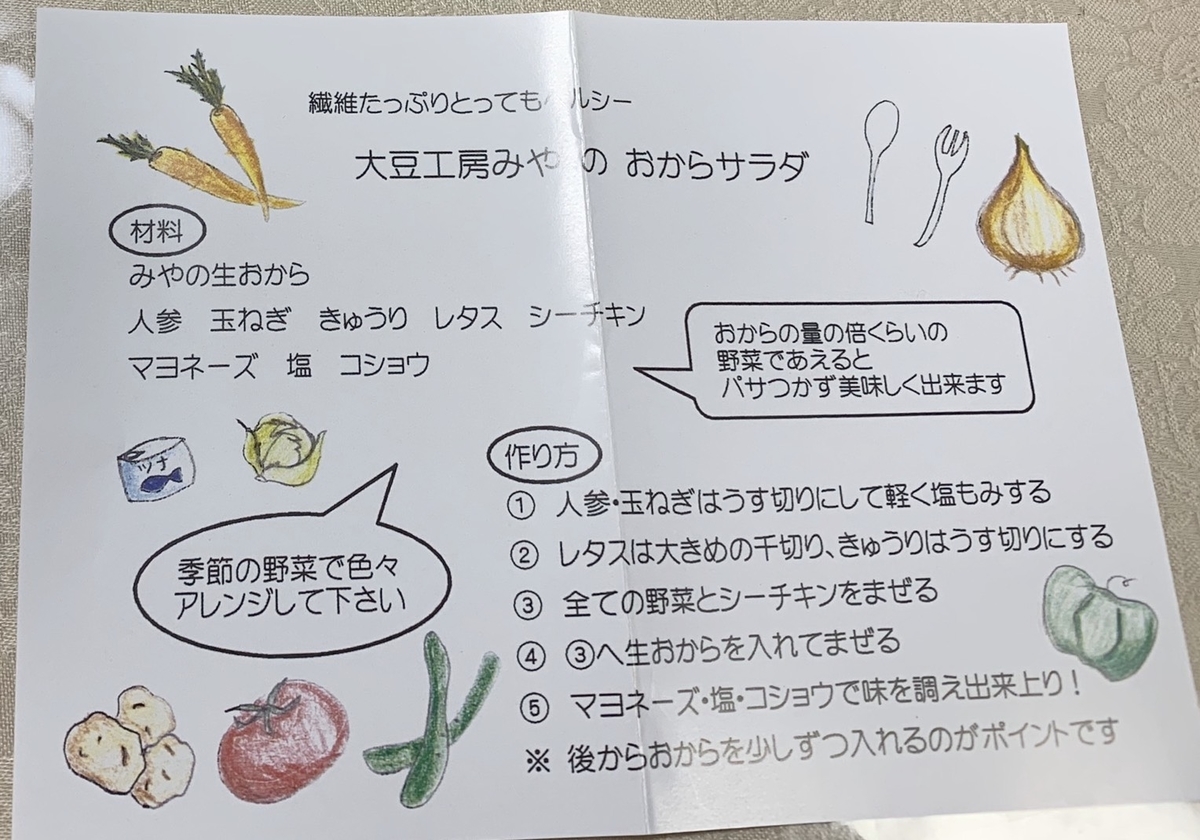 繊維たっぷりとってもヘルシー
大豆工房みやの おからサラダ
材料
みやの生おから
人参 玉ねぎ きゅうり レタス シーチキン
マヨネーズ 塩 コショウ
おからの量の倍くらいの
野菜であえると
パサつかず美味しく出来ます
ツナ
季節の野菜で色々
アレンジして下さい
作り方
① 人参・玉ねぎはうす切りにして軽く塩もみする
② レタスは大きめの千切り、きゅうりはうす切りにする
③ 全ての野菜とシーチキンをまぜる
④ ③へ生おからを入れてまぜる
⑤ マヨネーズ・塩・コショウで味を調え出来上り！
※ 後からおからを少しずつ入れるのがポイントです